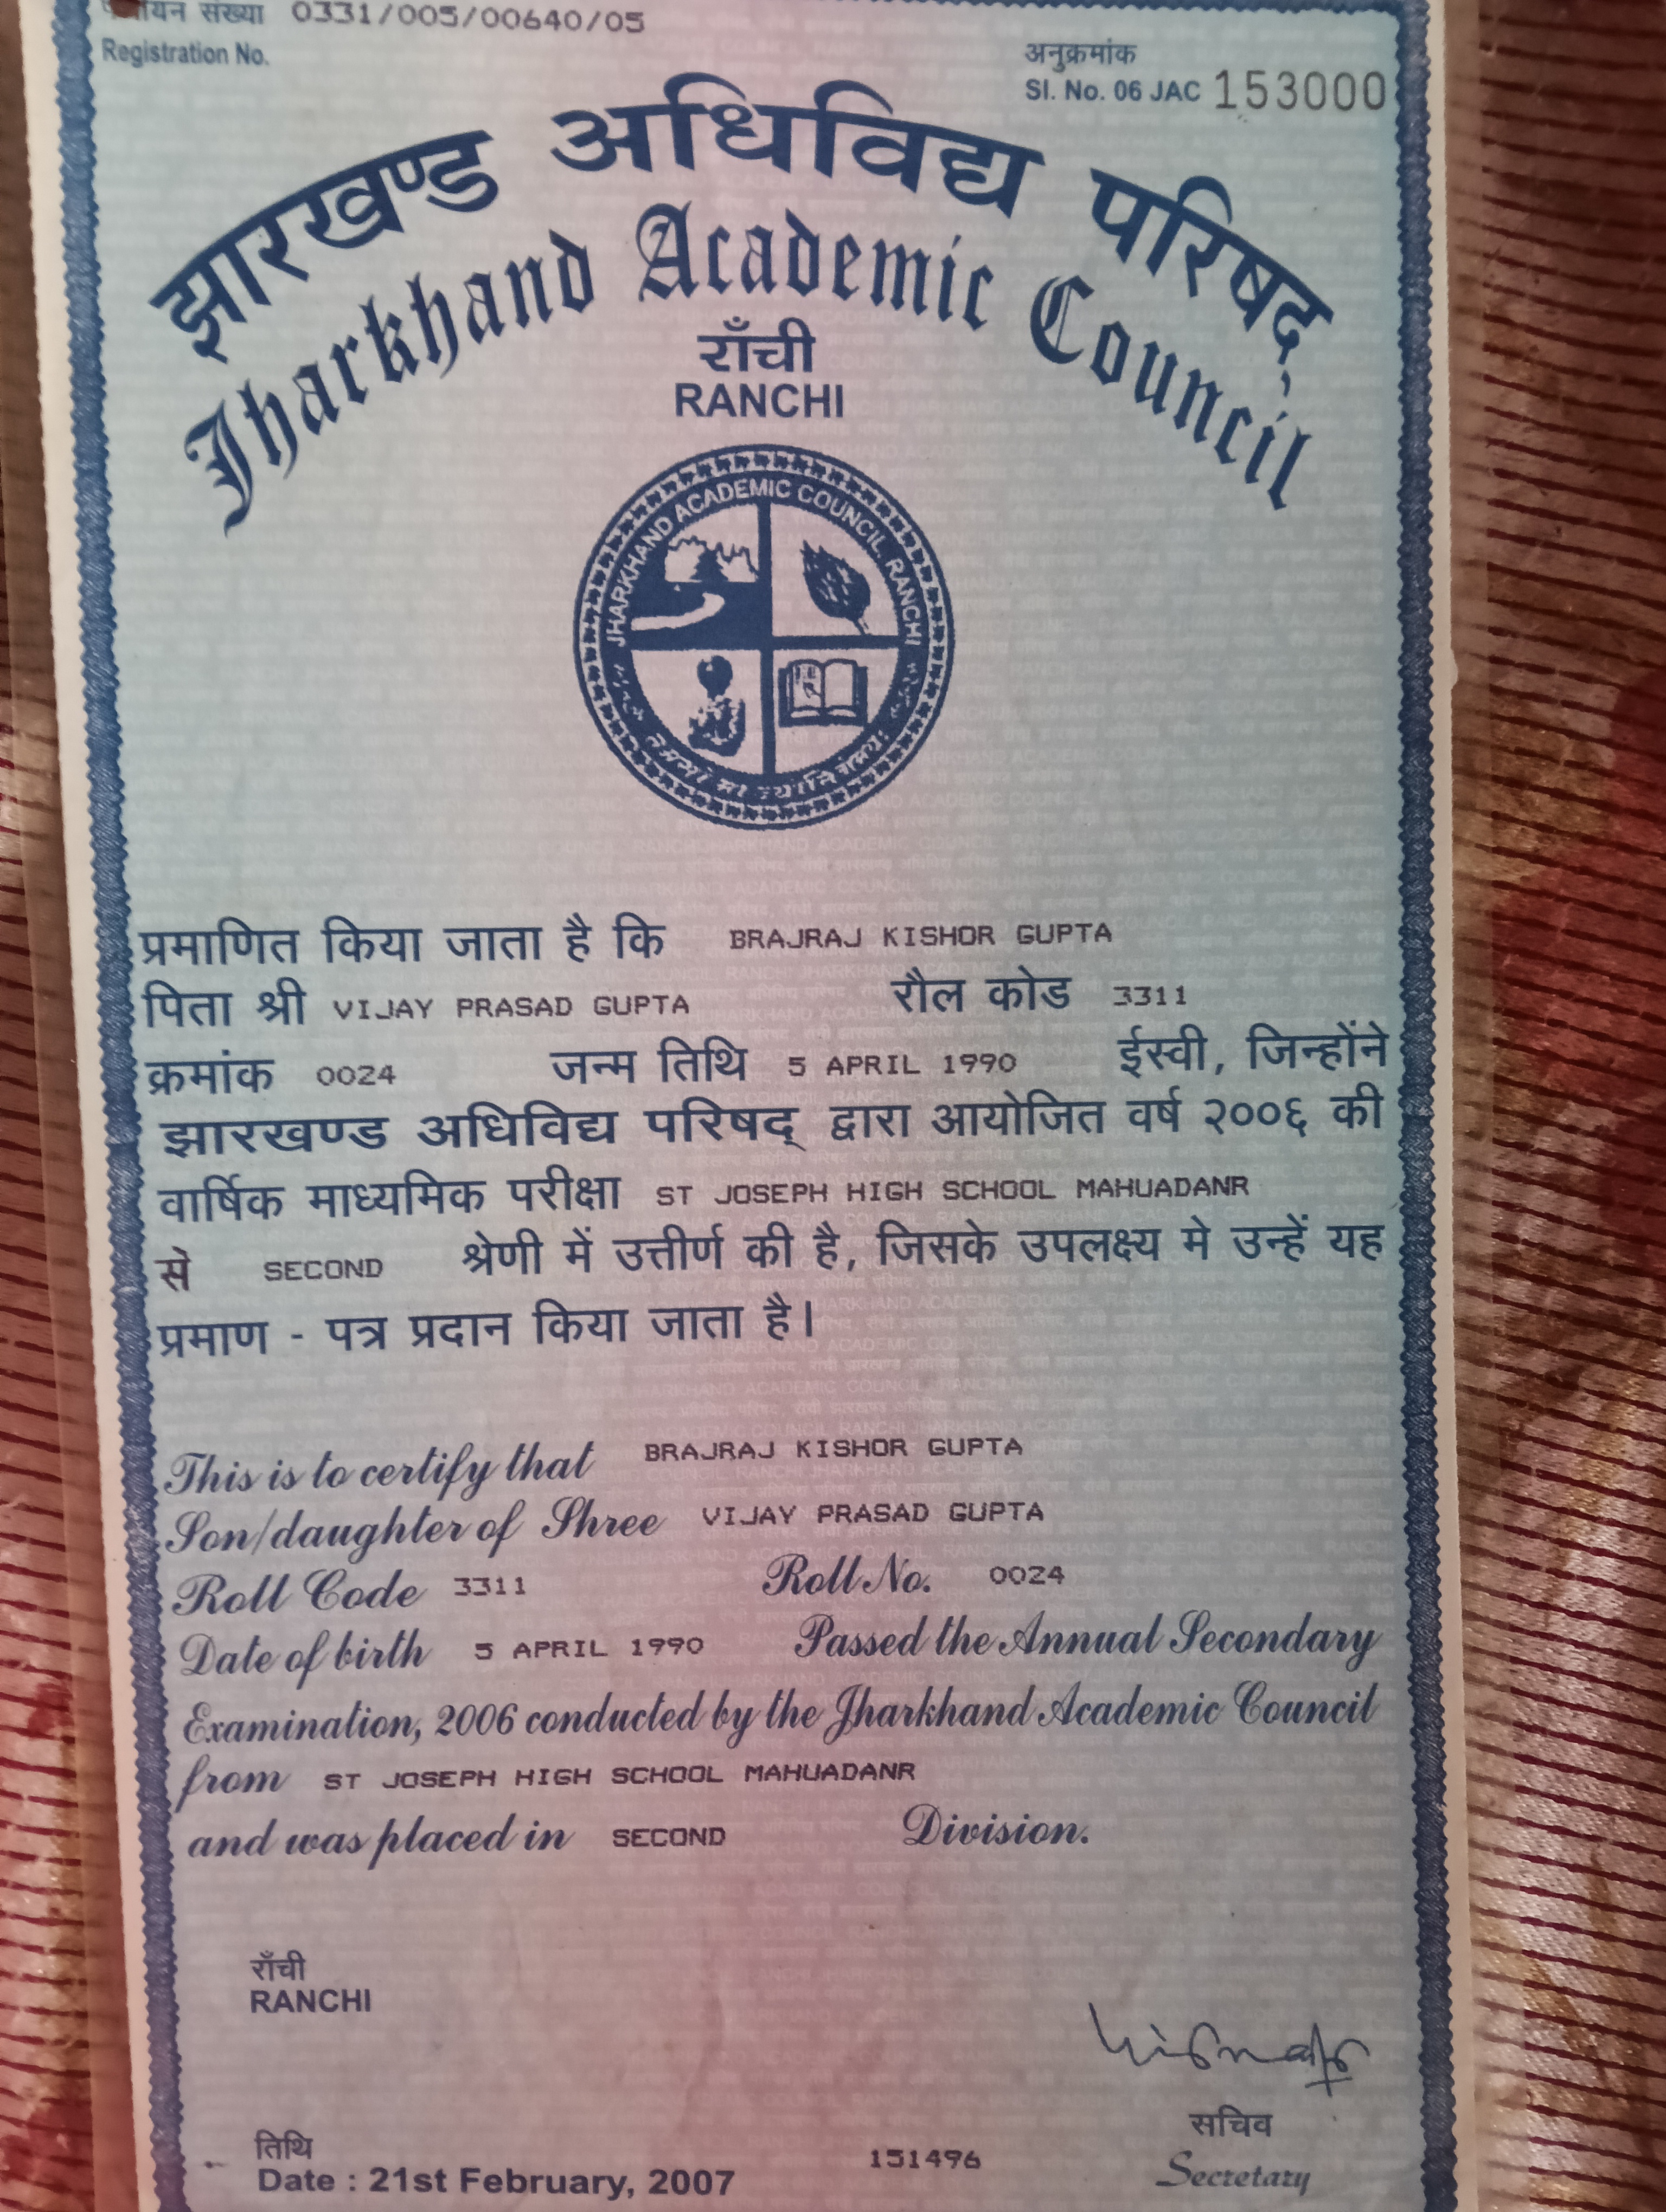 यन संख्या 0331/005/00640/05
Registration No.
अनुक्रमांक
Sl. No. 06 JAC 153000
झारखण्ड अधिविद्य परिषद्
Jharkhand Academic Council
राँची
RANCHI
JHARKHAND ACADEMIC COUNCIL, RANCHI
तमसो मा ज्योतिर्गमय
प्रमाणित किया जाता है कि BRAJRAJ KISHOR GUPTA
पिता श्री VIJAY PRASAD GUPTA रौल कोड 3311
क्रमांक 0024 जन्म तिथि 5 APRIL 1990 ईस्वी, जिन्होंने
झारखण्ड अधिविद्य परिषद् द्वारा आयोजित वर्ष २००६ की
वार्षिक माध्यमिक परीक्षा ST JOSEPH HIGH SCHOOL MAHUADANR
से SECOND श्रेणी में उत्तीर्ण की है, जिसके उपलक्ष्य मे उन्हें यह
प्रमाण - पत्र प्रदान किया जाता है।
This is to certify that BRAJRAJ KISHOR GUPTA
Son/daughter of Shree VIJAY PRASAD GUPTA
Roll Code 3311 Roll No. 0024
Date of birth 5 APRIL 1990 Passed the Annual Secondary
Examination, 2006 conducted by the Jharkhand Academic Council
from ST JOSEPH HIGH SCHOOL MAHUADANR
and was placed in SECOND Division.
राँची
RANCHI
तिथि
Date : 21st February, 2007
151496
सचिव
Secretary